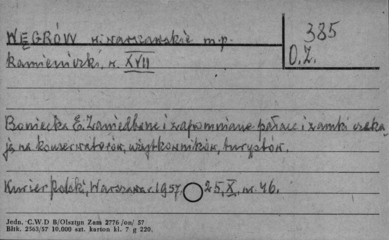 WĘGRÓW w. warszawskie m.p.
385
O.Z.
kamieniczki, w. XVII
Boniecka E. Zaniedbane i zapomniane pałace i zamki czeka
ją na konserwatorów, użytkowników, turystów.
Kurier Polski, Warszawa r. 1957 25, X, nr 46.
Jedn. C.W.D B/Olsztyn Zam 2776 /on/ 57
Błtk. 2563/57 10,000 szt. karton kl. 7 g 220.